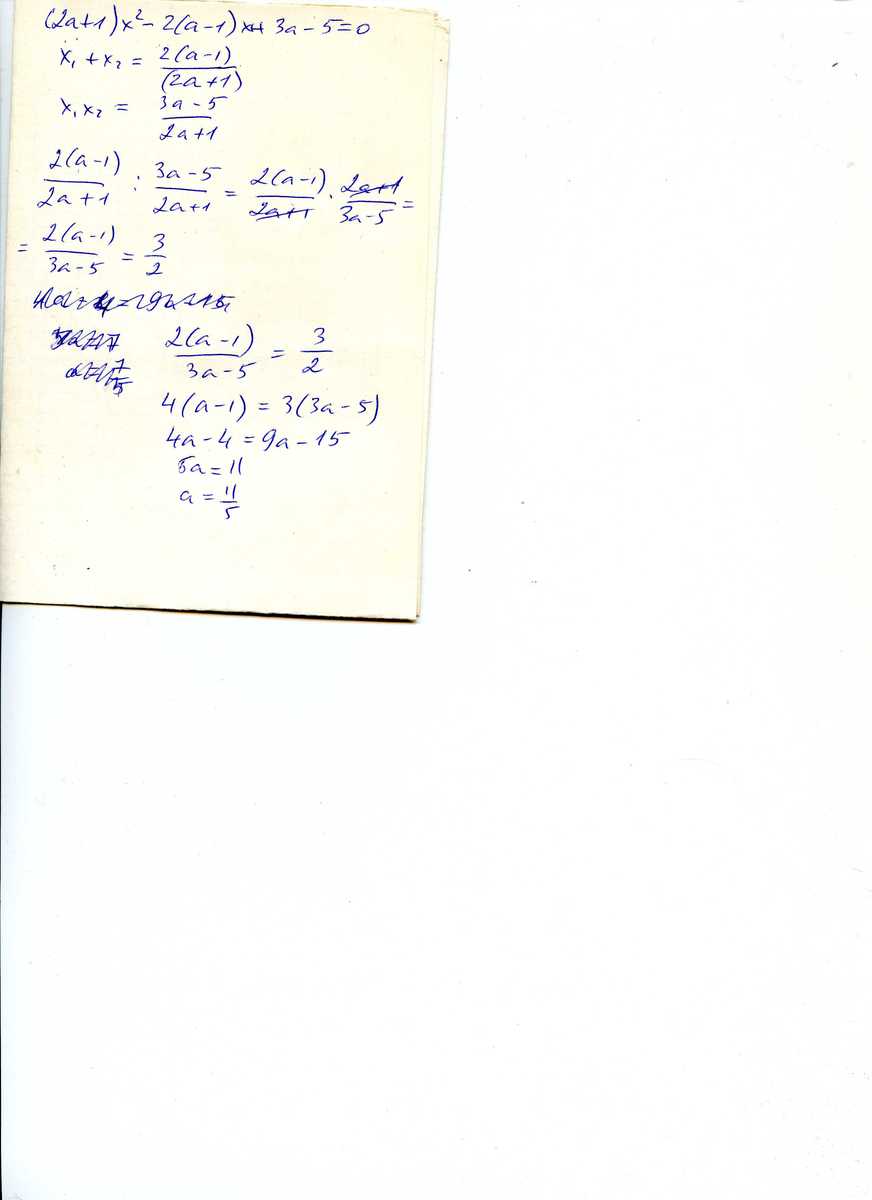 (2a+1)x² - 2(a-1)x + 3a - 5 = 0
x₁ + x₂ = 2(a-1)/(2a+1)
x₁x₂ = 3a-5/2a+1
2(a-1)/2a+1 : 3a-5/2a+1 = 2(a-1)/2a+1 · 2a+1/3a-5 =
= 2(a-1)/3a-5 = 3/2
2(a-1)/3a-5 = 3/2
4(a-1) = 3(3a-5)
4a-4 = 9a-15
5a = 11
a = 11/5